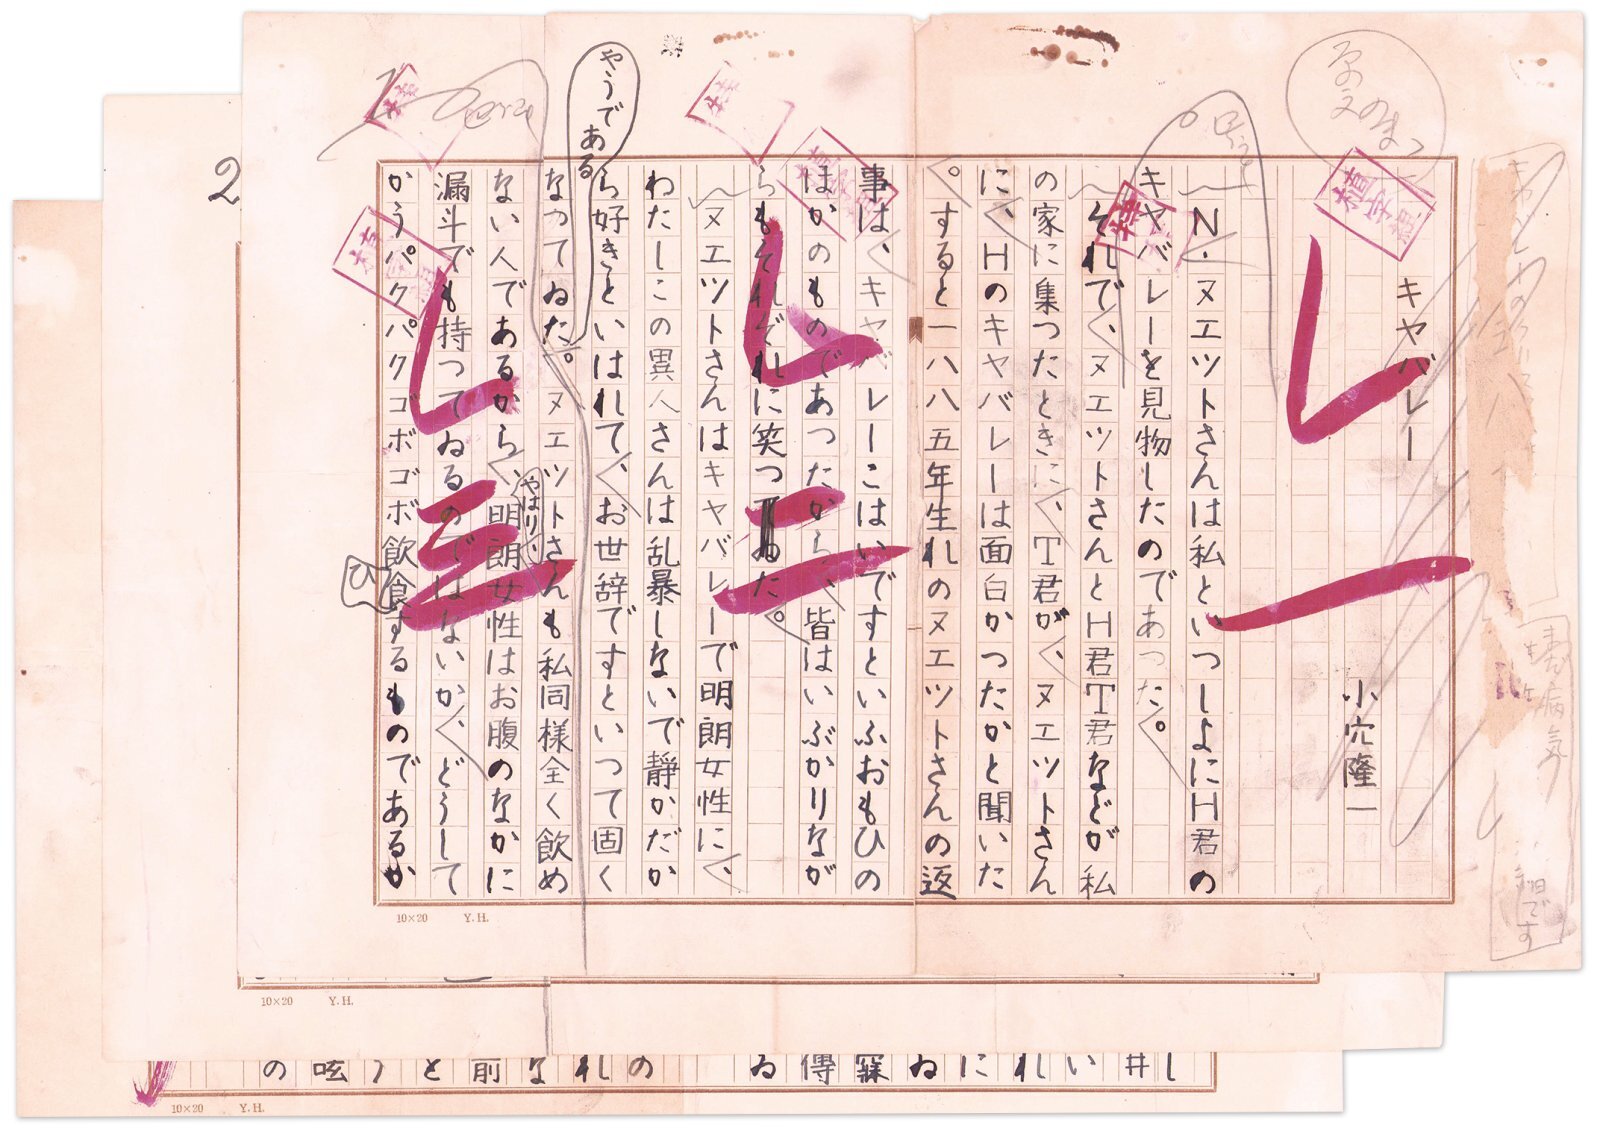 キヤバレー
小穴隆一
N・ヌエツトさんは私といつしよにH君の
キヤバレーを見物したのであつた。
それで、ヌエツトさんとH君T君などが私
の家に集つたときに、T君が、ヌエツトさん
に、Hのキヤバレーは面白かつたかと聞いた
。すると一八八五年生れのヌエツトさんの返
事は、キヤバレーこはいですといふおもひの
ほかのものであつたから、皆はいぶかりなが
らもそれぞれに笑つゐた。
ヌエツトさんはキヤバレーで明朗女性に、
わたしこの異人さんは乱暴しないで静かだか
ら好きといはれて、お世辞ですといつて固く
なつてゐた。ヌエツトさんも私同様全く飲め
やうである
ない人であるから、明朗女性はお腹のなかに
やはり、
漏斗でも持つてゐるのではないか、どうして
かうパクパクゴボゴボ飲食するものであるか
ひ
原文のまゝ
病気
です
2
10×20 Y.H.
10×20 Y.H.
し井いれにゐ寐傳ゐ
のれな前と呟の
10×20 Y.H.